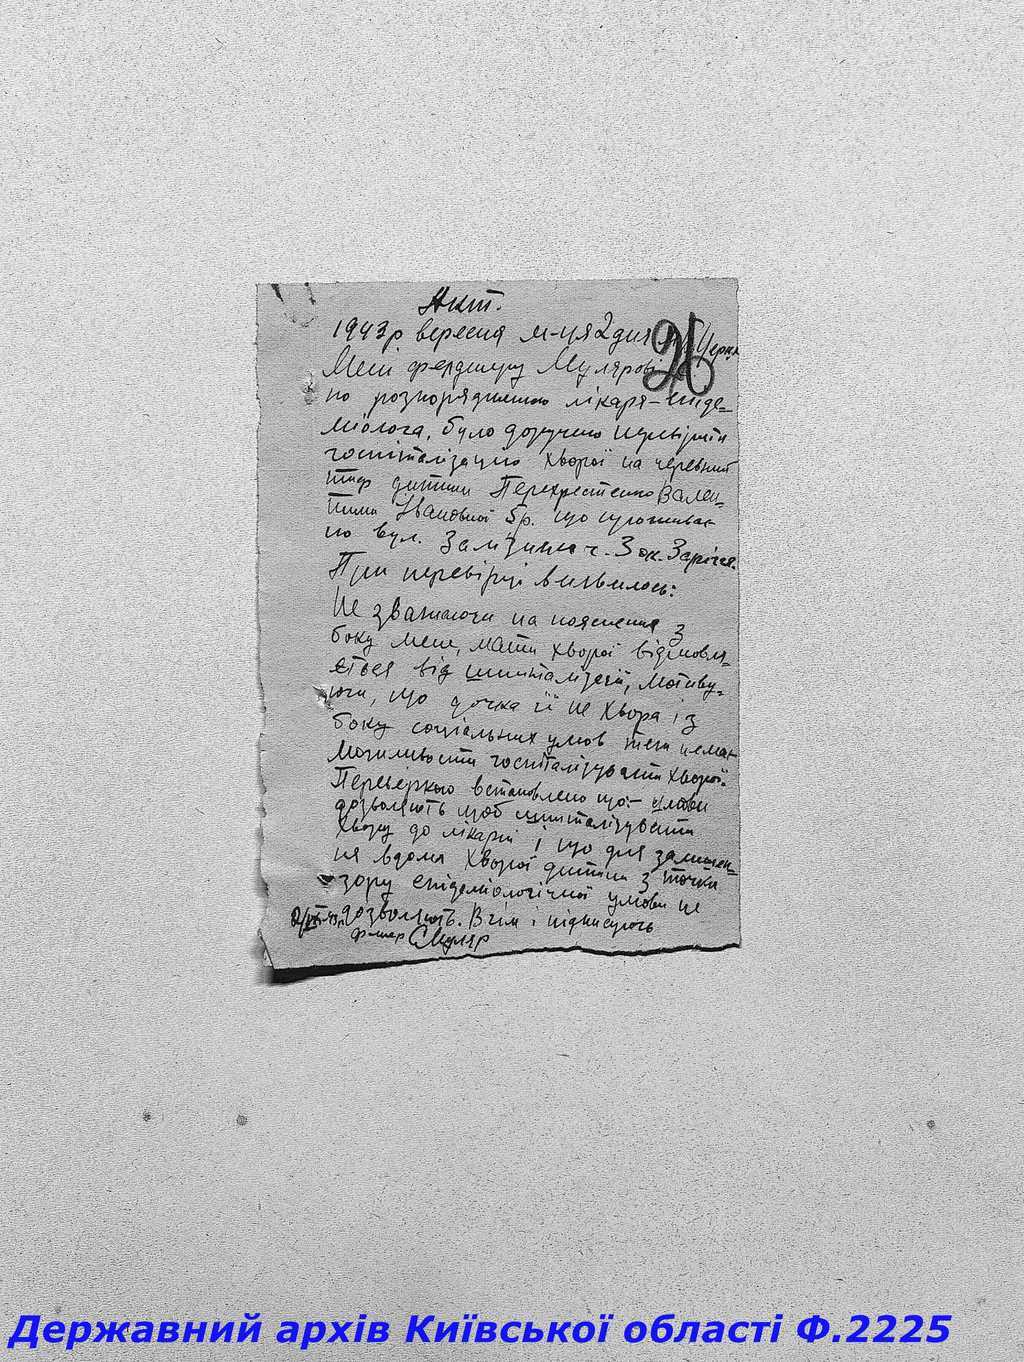 Акт.
1943р вересня м-ця 2 дня
26
Мені фельдшеру Мулярові
по розпорядженню лікаря-епіде=
міолога, було доручено перевірити
госпіталізацію хворої на черевний
тиф дитини Перехрестенко Вален=
тини Івановної 5р. що проживає
по вул. Залізняка ч. 3 ок. Заріччя.
При перевірці виявилось:
Не зважаючи на пояснення з
боку мене, мати хворої відмовля=
ється від шпиталізації, мотиву=
ючи, що дочка її не хвора і з
боку соціяльних умов теж немає
можливости госпіталізувати хворої.
Перевіркою встановлено що:- умови
дозволяють щоб шпиталізувати
хвору до лікарні і що для залишен=
ня вдома хворої дитини з точки
зору епідеміологічної умови не
дозволяють. В чім і підписуюсь
Ф-шер СМуляр
Державний архів Київської області Ф.2225